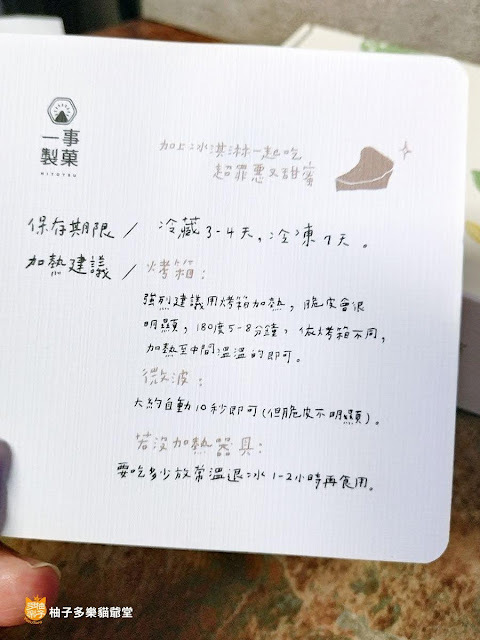 一事
製菓
HITOTSU
加上冰淇淋一起吃
超罪惡又甜蜜
保存期限 / 冷藏3-4天,冷凍7天。
加熱建議 / 烤箱:
強烈建議用烤箱加熱,脆皮會很
明顯,180度5-8分鐘,依烤箱不同,
加熱至中間溫溫的即可。
微波:
大約自動10秒即可(但脆皮不明顯)。
若沒加熱器具:
要吃多少放常溫退冰1-2小時再食用。
柚子多樂貓爺堂